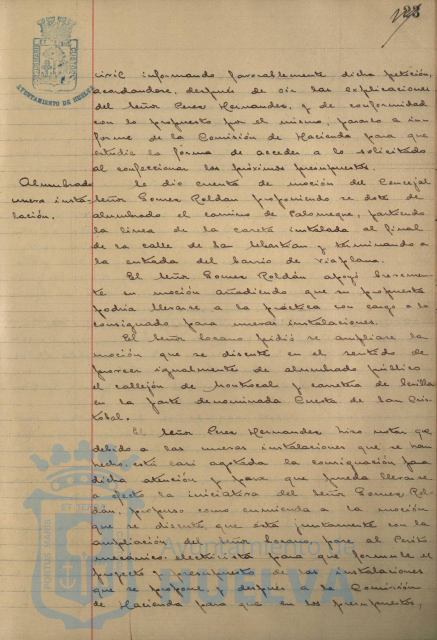 123
AYUNTAMIENTO DE HUELVA
civil informando favorablemente dicha petición,
acordandose, después de oir las explicaciones
del Señor Perez Hernandez, y de conformidad
con lo propuesto por el mismo, pasarla a in-
forme de la Comisión de Hacienda para que
estudie la forma de acceder a lo solicitado
al confeccionar los próximos presupuestos.
Alumbrado
nueva insta-
lación.
Se dio cuenta de moción del Concejal
Señor Gomez Roldán proponiendo se dote de
alumbrado el camino de Palomeque, partiendo
la linea de la caseta instalada al final
de la calle de San Sebastián y terminando a
la entrada del barrio de Viaplana.
El Señor Gomez Roldán apoyó brevemen-
te su moción añadiendo que su propuesta
podria llevarse a la práctica con cargo a lo
consignado para nuevas instalaciones.
El Señor Lozano pidió se ampliase la
moción que se discute en el sentido de
proveer igualmente de alumbrado público
el callejón de Montrocal y carretera de Sevilla
en la parte denominada Cuesta de San Cris-
tobal.
El Señor Perez Hernandez hizo notar que
debido a las nuevas instalaciones que se han
hecho, está casi agotada la consignación para
dicha atención y para que pueda llevarse
a efecto la iniciativa del Señor Gomez Rol-
dán, propuso como enmienda a la moción
que se discute, que ésta juntamente con la
ampliación del Señor Lozano, pase al Perito
mecánico electricista para que formule el
proyecto y presupuesto de las instalaciones
que se propone, y después a la Comisión
de Hacienda para que en los presupuestos,
PORTUS MARIS
ET TERRAE
Ayuntamiento de
HUELVA